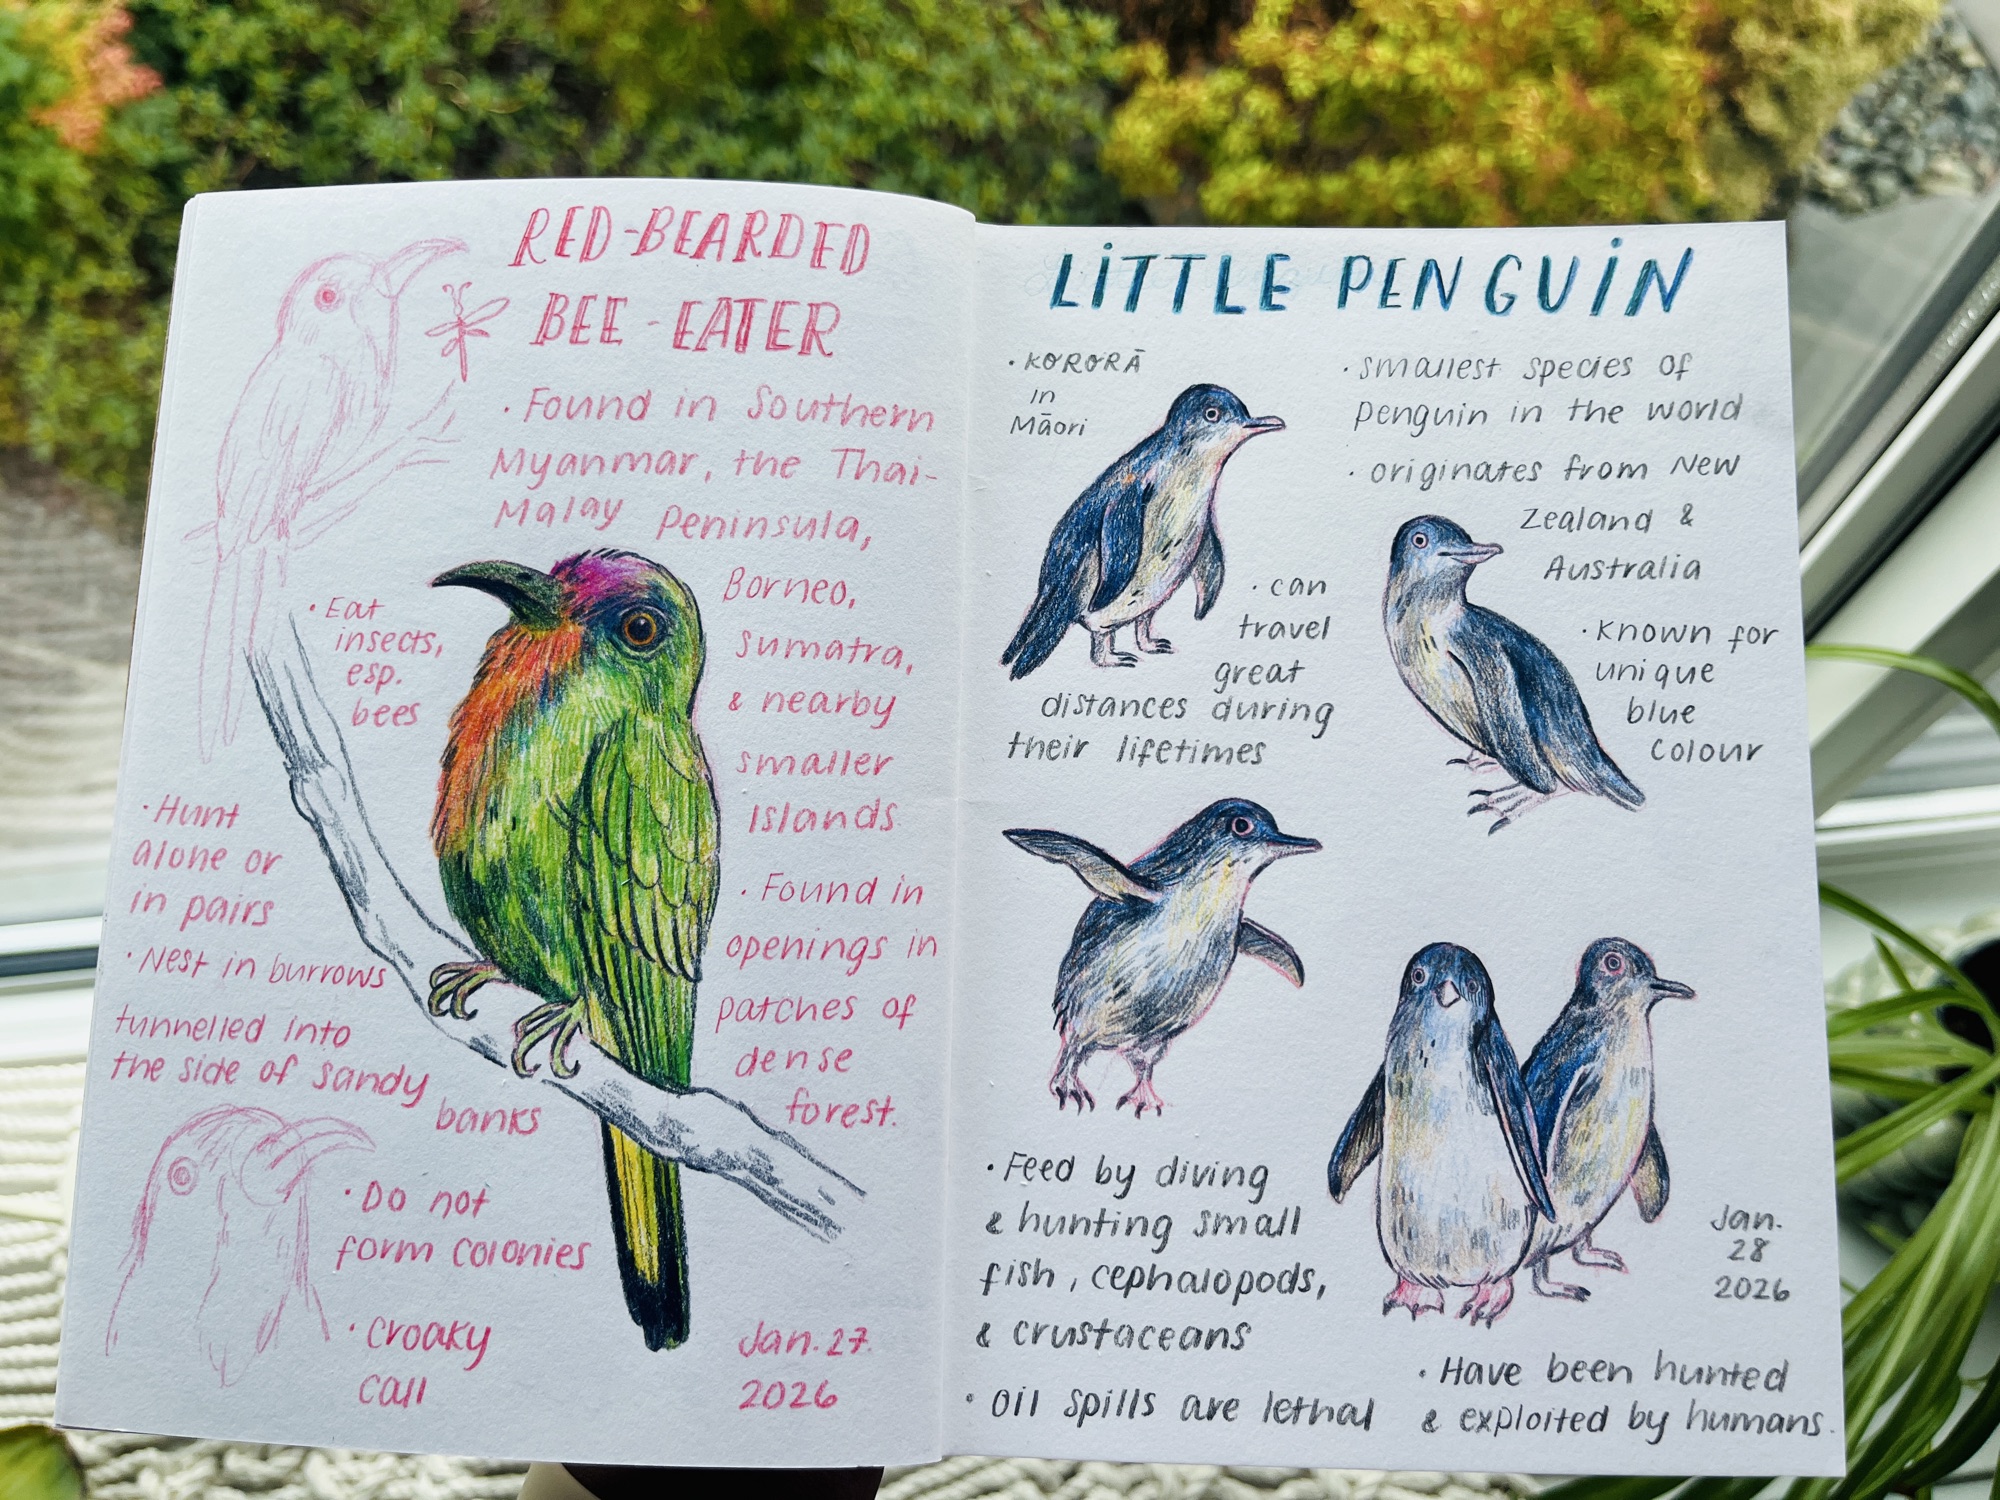 RED-BEARDED
BEE-EATER
· Found in Southern
Myanmar, the Thai-
Malay Peninsula,
Borneo,
Sumatra,
& nearby
smaller
Islands.
· Eat
insects,
esp.
bees
· Hunt
alone or
in pairs
· Nest in burrows
tunnelled into
the side of sandy
banks
· Found in
openings in
patches of
dense
forest.
· Do not
form colonies
· Croaky
call
Jan. 27.
2026
LiTTLE PENGUiN
· KORORĀ
in
Māori
· smallest species of
penguin in the world
· originates from New
Zealand &
Australia
· can
travel
great
distances during
their lifetimes
· Known for
unique
blue
colour
· Feed by diving
& hunting small
fish, cephalopods,
& crustaceans
· Oil spills are lethal
Jan.
28
2026
· Have been hunted
& exploited by humans.